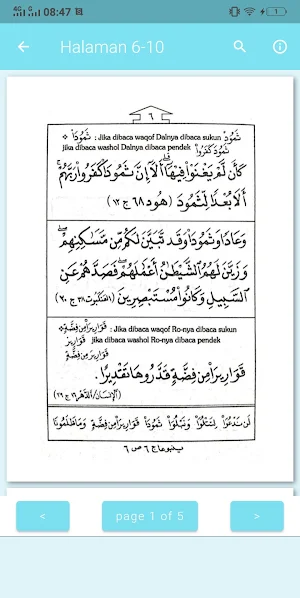 4G 4G 08:47
1
Halaman 6-10
٦
* ثَمُوْدَاْ : Jika dibaca waqof Dalnya dibaca sukun ثَمُوْدْ
jika dibaca washol Dalnya dibaca pendek ثَمُوْدَ كَفَرُوْا
كَأَن لَّمْ يَغْنَوْا۟ فِيهَآ ۗ أَلَآ إِنَّ ثَمُودَا۟ كَفَرُوا۟ رَبَّهُمْ ۗ
أَلَا بُعْدًا لِّثَمُودَ (هود ٦٨ ج ١٢)
وَعَادًا وَثَمُودَا۟ وَقَد تَّبَيَّنَ لَكُم مِّن مَّسَٰكِنِهِمْ ۖ
وَزَيَّنَ لَهُمُ الشَّيْطَٰنُ أَعْمَٰلَهُمْ فَصَدَّهُمْ عَنِ
السَّبِيلِ وَكَانُوا۟ مُسْتَبْصِرِينَ (العنكبوت ٣٨ ج ٢٠)
* قَوَارِيرَا۟ مِن فِضَّةٍ : Jika dibaca waqof Ro-nya dibaca sukun
jika dibaca washol Ro-nya dibaca pendek قَوَارِيرْ
قَوَارِيرَ مِن فِضَّةٍ
قَوَارِيرَا۟ مِن فِضَّةٍ قَدَّرُوهَا تَقْدِيرًا.
(الإنسان/الدهر ١٦ ج ٢٩)
لَن نَّدْعُوَا۟ لِتَتْلُوَا۟ وَنَبْلُوَا۟ ثَمُودَا۟ قَوَارِيرَا۟ مِن فِضَّةٍ وَمَا ظَلَمُونَا
ينبوعا ج ٦ ص ٦
< page 1 of 5 >